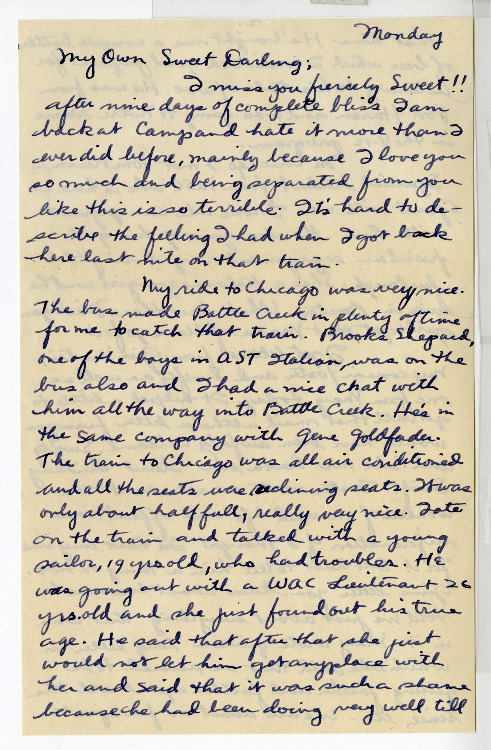 Monday
My Own Sweet Darling;
I miss you fiercely Sweet!!
after nine days of complete bliss I am
back at Camp and hate it more than I
ever did before, mainly because I love you
so much and being separated from you
like this is so terrible. It's hard to de-
scribe the felling I had when I got back
here last nite on that train.
My ride to Chicago was very nice.
The bus made Battle Creek in plenty of time
for me to catch that train. Brooks Shepard,
one of the boys in AST Italian, was on the
bus also and I had a nice chat with
him all the way into Battle Creek. He's in
the same company with Gene Goldfader.
The train to Chicago was all air conditioned
and all the seats were reclining seats. It was
only about half full, really very nice. I ate
on the train and talked with a young
sailor, 19 yrs old, who had troubles. He
was going out with a WAC Lieutenant 26
yrs. old and she just found out his true
age. He said that after that she just
would not let him get anyplace with
her and said that it was such a shame
because he had been doing very well till